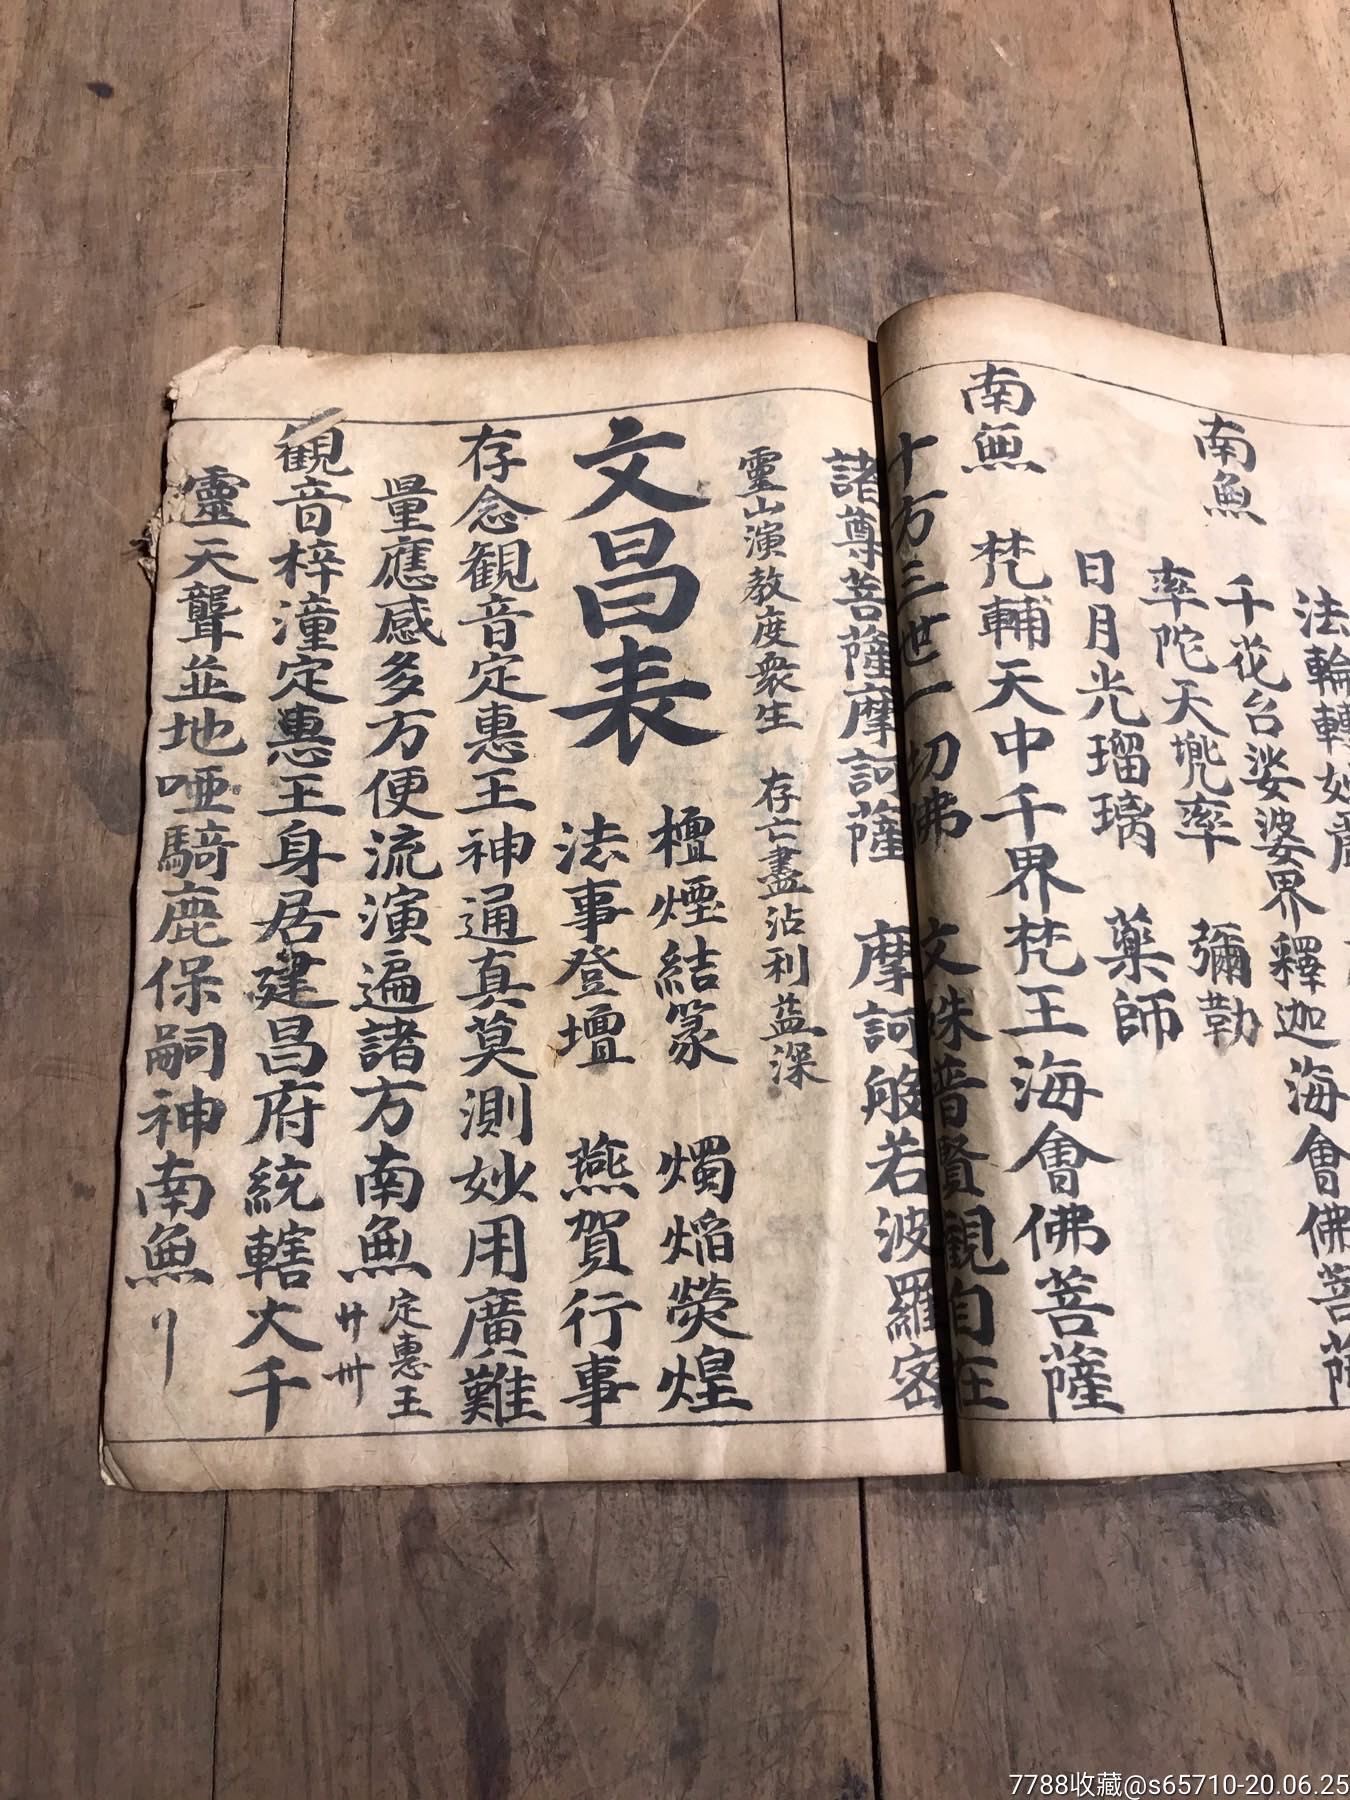 法輪轉妙
南無
千花台娑婆界釋迦海會佛菩薩
率陀天兜率 彌勒
日月光瑠璃 藥師
南無
梵輔天中千界梵王海會佛菩薩
十方三世一切佛 文殊普賢觀自在
諸尊菩薩摩訶薩 摩訶般若波羅密
靈山演教度衆生 存亡盡沾利益深
文昌表
檀煙結篆 燭焰熒煌
法事登壇 燕賀行事
存念観音定惠王神通真莫測妙用廣難
量應感多方便流演遍諸方南無定惠王
観音梓潼定惠王身居建昌府統轄大千
靈天聾並地啞騎鹿保嗣神南無
7788收藏@s65710-20.06.25